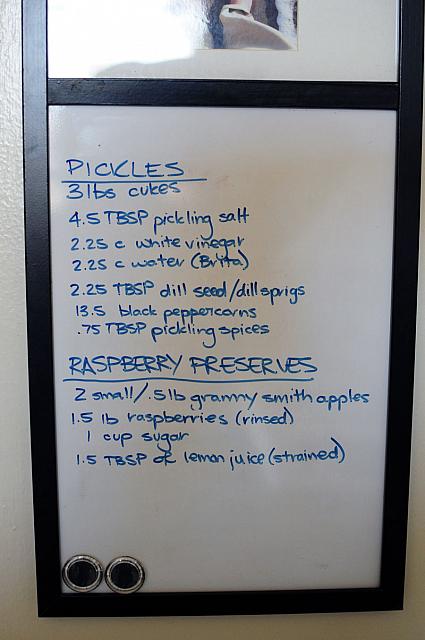 PICKLES
3 lbs cukes
4.5 TBSP pickling salt
2.25 c white vinegar
2.25 c water (Brita)
2.25 TBSP dill seed/dill sprigs
13.5 black peppercorns
.75 TBSP pickling spices
RASPBERRY PRESERVES
2 small/.5 lb granny smith apples
1.5 lb raspberries (rinsed)
1 cup sugar
1.5 TBSP of lemon juice (strained)